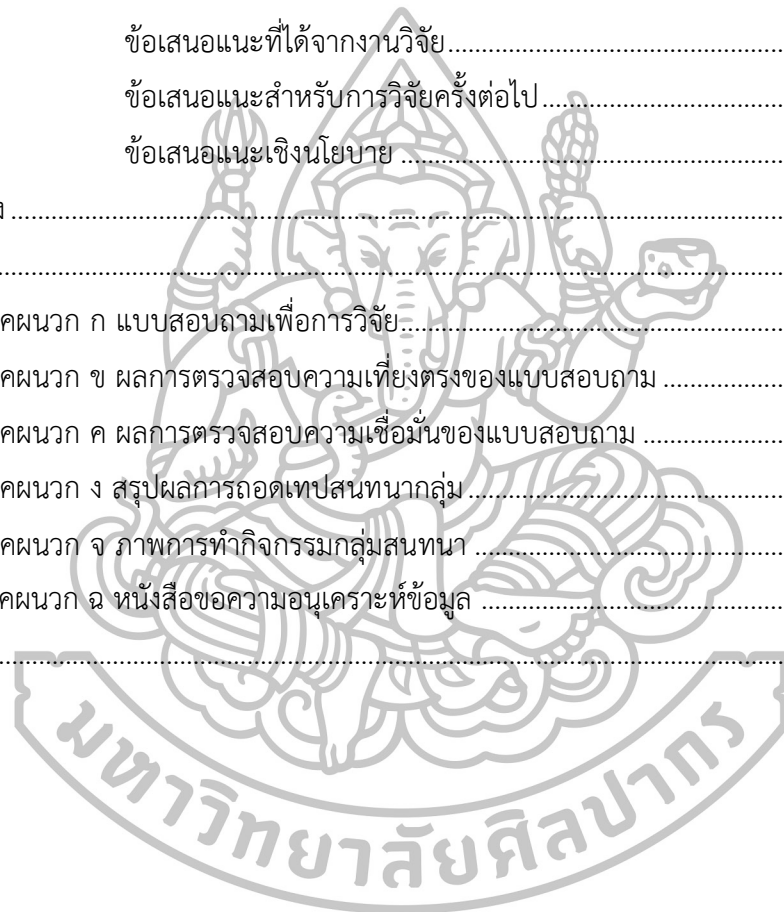 ข้อเสนอแนะที่ได้จากงานวิจัย
ข้อเสนอแนะสำหรับการวิจัยครั้งต่อไป
ข้อเสนอแนะเชิงนโยบาย
คผนวก ก แบบสอบถามเพื่อการวิจัย
คผนวก ข ผลการตรวจสอบความเที่ยงตรงของแบบสอบถาม
คผนวก ค ผลการตรวจสอบความเชื่อมั่นของแบบสอบถาม
คผนวก ง สรุปผลการถอดเทปสนทนากลุ่ม
คผนวก จ ภาพการทำกิจกรรมกลุ่มสนทนา
คผนวก ฉ หนังสือขอความอนุเคราะห์ข้อมูล
มหาวิทยาลัยศิลปากร